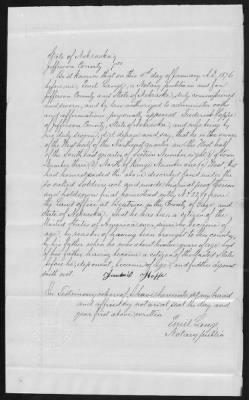 State of Nebraska
Jefferson County } ss
Be it known that on this day of January A.D. 1876
before me, Emil Lang, a Notary public in and for
Jefferson County and State of Nebraska, duly commissioned
and sworn, and by law authorized to administer oaths
and affirmations, personally appeared Frederick Hoppe
of Jefferson County, State of Nebraska, and who being by
me duly sworn, did depose and say, that he is the owner
of the West half of the Northeast quarter and the West half
of the South east quarter of Section Number
number three (3) North of Range Number
had homesteaded the above described land under the
so called Soldiers and
and
the Land office at Beatrice in the County of Gage and
State of Nebraska, that he has been a citizen of the
United States of America ever since he became of
age, by reason of having been brought to this country
by his father when he was about years of age and
of his father having become a citizen of the United States
before he, deponent, became of age, and further deponent
saith not.
Hoppe
In Testimony whereof, I have hereunto set my hand
and affixed my notarial seal the day and
year first above written
Emil Lang
Notary public